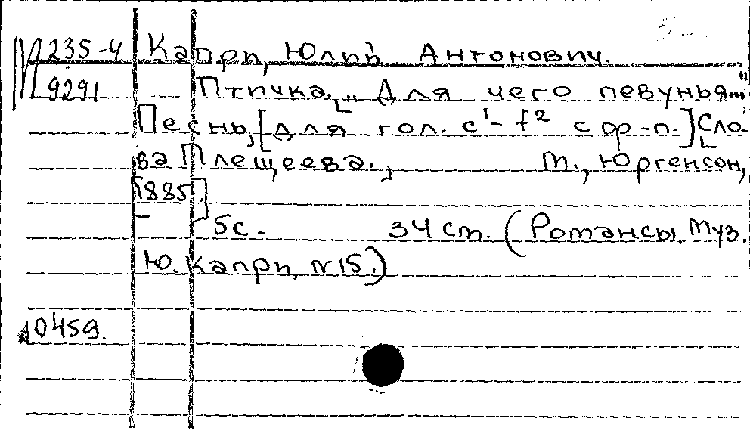 М 235-4 Капри, Юлий Антонович.
9291 Птичка. „Для чего певунья..."
Песнь, [для гол. c¹-f² с ф-п.] Сло-
ва Плещеева.
М., Юргенсон,
[1885].
5с. 34 см. (Романсы. Муз.
Ю. Капри, №15.)
0459.